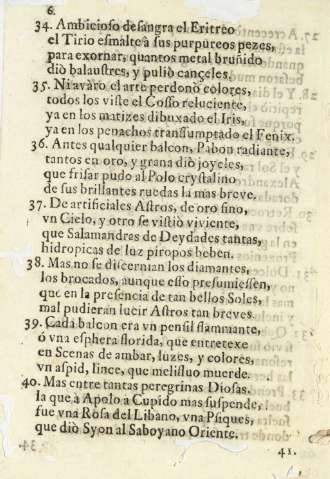 6.
34. Ambicioso desangra el Eritreo
el Tirio esmalte à sus purpureos pezes,
para exornar, quantos metal bruñido
diò balaustres, y puliò cançeles.
35. Ni avaro el arte perdonò colores,
todos los viste el Cosso reluciente,
ya en los matizes dibuxado el Iris,
ya en los penachos transumptado el Fenix.
36. Antes qualquier balcon, Pabon radiante,
tantos en oro, y grana diò joyeles,
que frisar pudo al Polo crystalino
de sus brillantes ruedas la mas breve.
37. De artificiales Astros, de oro fino,
vn Cielo, y otro se vistiò viviente,
que Salamandras de Deydades tantas,
hidropicas de luz piropos beben.
38. Mas no se discernian los diamantes,
los brocados, aunque esso presumiessen,
que en la presencia de tan bellos Soles,
mal pudieran lucir Astros tan breves.
39. Cada balcon era vn pensil flammante,
ó vna esphera florida, que entretexe
en Scenas de ambar, luzes, y colores,
vn aspid, lince, que melifluo muerde.
40. Mas entre tantas peregrinas Diosas.
la que à Apolo a Cupido mas suspende,
fue vna Rosa del Libano, vna Psiques,
que diò Syon al Saboyano Oriente.
41.